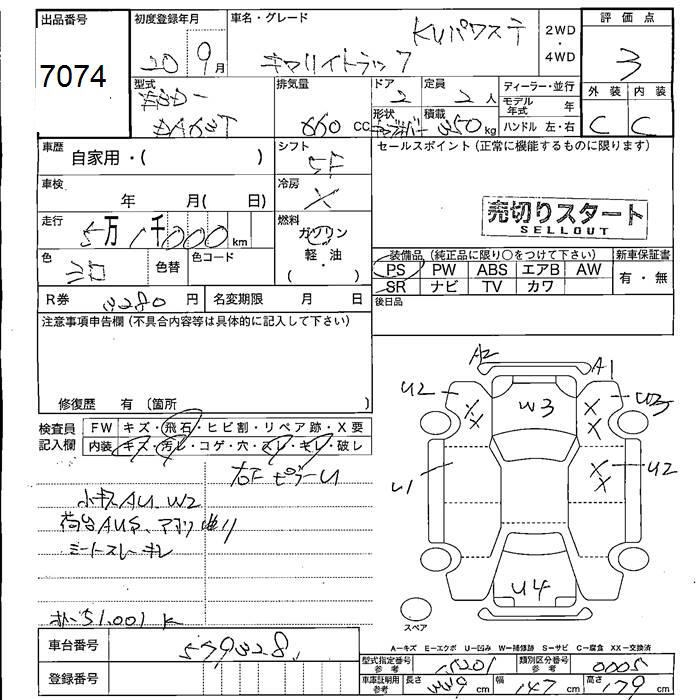 出品番号 初度登録年月 車名・グレード 2WD・4WD 評価点
7074 20 9月 キャリイトラック KUパワステ 3
型式 EBD- DA63T 排気量 660 cc ドア 2 定員 2人 ディーラー・並行 外装 内装
形状 積載 350kg モデル年式 年 ハンドル 左・右 C C
車歴 自家用・( ) シフト 5F セールスポイント (正常に機能するものに限ります)
車検 年 月( 日) 冷房 X
売切りスタート
SELLOUT
走行 5万1千000km 燃料 ガソリン・軽油・( )
色 シロ 色替 色コード
装備品 (純正品に限り○をつけて下さい) 新車保証書
PS PW ABS エアB AW 有・無
SR ナビ TV カワ
R券 3280円 名変期限 月 日 後日品
注意事項申告欄 (不具合内容等は具体的に記入して下さい)
修復歴 有 〔箇所 〕
検査員記入欄 FW キズ・飛石・ヒビ割・リペア跡・X要
内装 キズ・汚レ・コゲ・穴・スレ・キレ・破レ
右F ピラーU
小キズAU、W2
荷台AUS、アオリ曲り
シートスレ キレ
51.001 K
A2 A1
U2 XX W3 XX W3
U1 XX U2
U4
スペア
A-キズ E-エクボ U-凹み W-補修跡 S-サビ C-腐食 XX-交換済
車台番号 559328
登録番号
型式指定番号 参考 15201 類別区分番号 参考 0005
車庫証明用 参考 長さ 339cm 幅 147cm 高さ 179cm